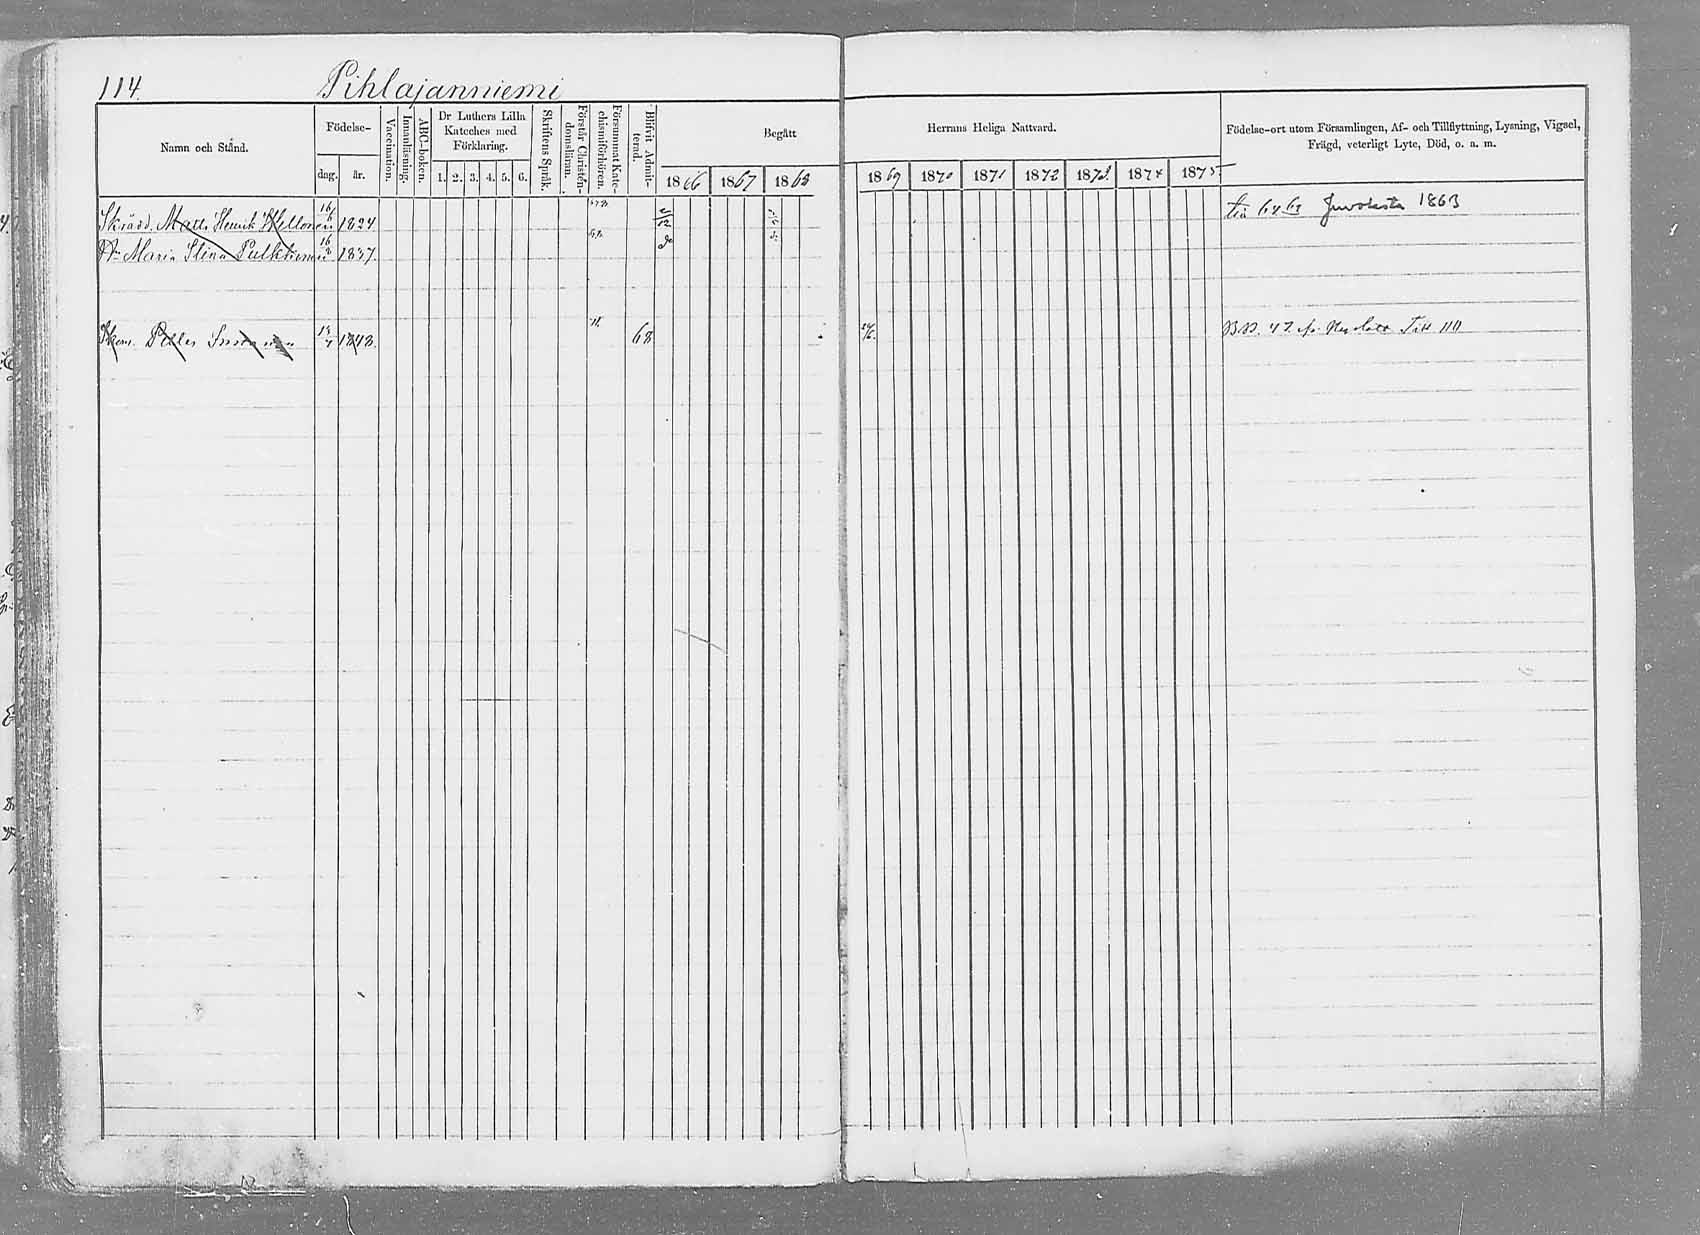 114.
Pihlajanniemi
Namn och Stånd.
Födelse-
dag. år.
Vaccination.
Innanläsning.
ABC-boken.
Dr Luthers Lilla
Kateches med
Förklaring.
1. 2. 3. 4. 5. 6.
Skriftens Språk.
Förstår Christen-
domsläran.
Försummat Kate-
chismiförhören.
Blifvit Admit-
terad.
Begått
1866 1867 1868
Herrans Heliga Nattvard.
1869 1870 1871 1872 1873 1874 1875
Födelse-ort utom Församlingen, Af- och Tillflyttning, Lysning, Vigsel,
Frägd, veterligt Lyte, Död, o. a. m.
Skrädd. Matts Henrik 16/6 1824 1863
Maria Stina Pulkkinen 16/8 1837.
1848. 68